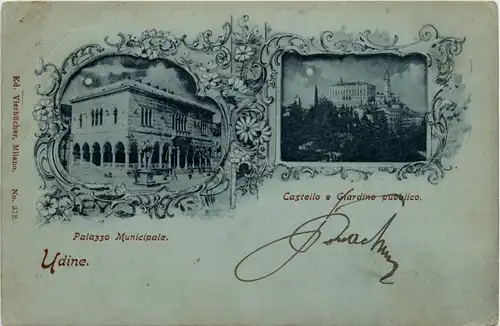 Ed. Vierbücher, Milano. No. 373.
Palazzo Municipale.
Castello e Giardino pubblico.
Udine.